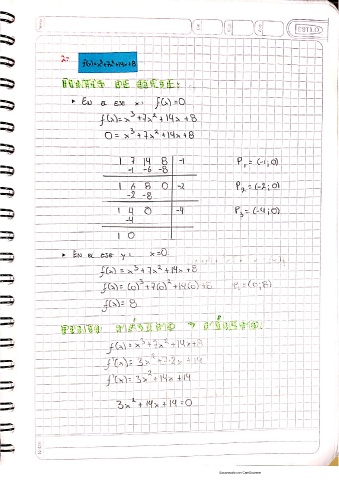 ESTILO
2.- f(x)=x³+7x²+14x+8
PUNTOS DE CORTE:
▸ En el eje x, f(x)=0
f(x)=x³+7x²+14x+8
0=x³+7x²+14x+8
1 7 14 8 | -1 P₁=(-1;0)
-1 -6 -8
1 6 8 0 -2 P₂=(-2;0)
-2 -8
1 4 0 -4 P₃=(-4;0)
-4
1 0
▸ En el eje y: x=0
f(x)=x³+7x²+14x+8
f(x)=(0)³+7(0)²+14(0)+8 P₁=(0;8)
f(x)=8
PUNTOS MÁXIMO Y MÍNIMO.
f(x)=x³+7x²+14x+8
f'(x)=3x²+7·2x+14
f'(x)=3x²+14x+14
3x²+14x+14=0
Escaneado con CamScanner